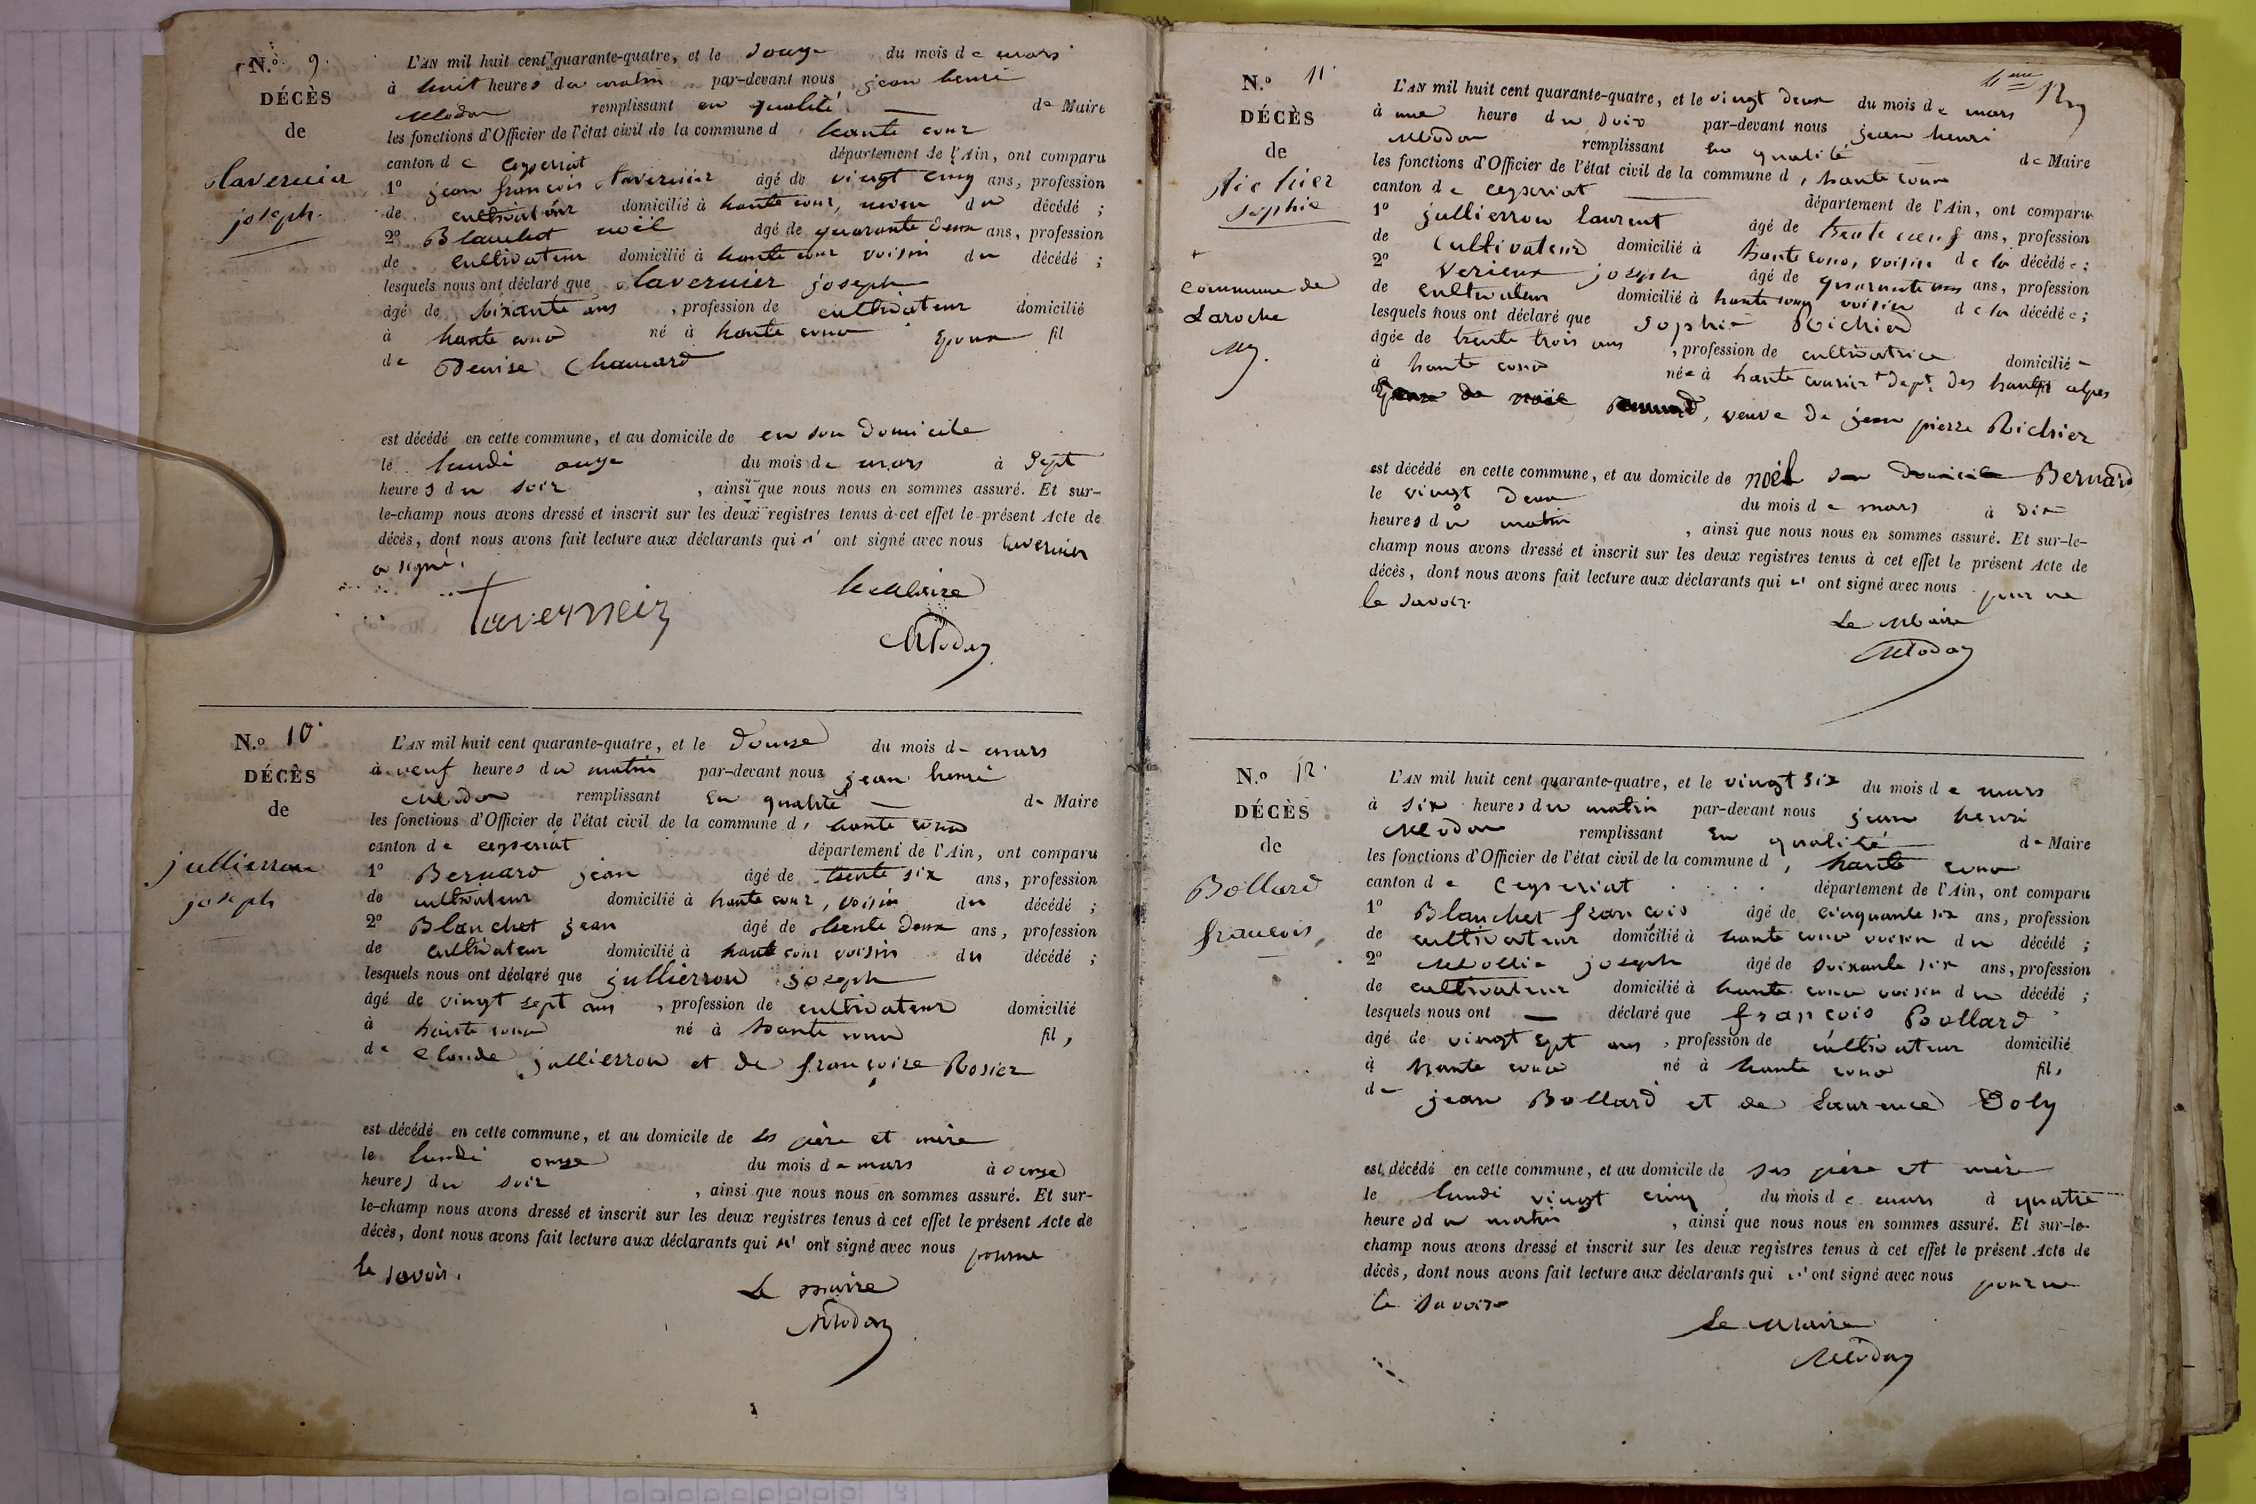 N.o 9.
DÉCÈS
de
Tavernier
joseph.
L'AN mil huit cent quarante-quatre, et le douze du mois de mars
à huit heures du matin par-devant nous jean henri
Modas remplissant en qualité de Maire
les fonctions d'Officier de l'état civil de la commune d' haute cour
canton de ceyseriat département de l'Ain, ont comparu
1o jean françois Tavernier âgé de vingt cinq ans, profession
de cultivateur domicilié à haute cour, neveu du décédé ;
2o Blanchet noël âgé de quarante deux ans, profession
de cultivateur domicilié à haute cour voisin du décédé ;
lesquels nous ont déclaré que Tavernier joseph
âgé de soixante ans, profession de cultivateur domicilié
à haute cour né à haute cour Epoux fil
de Denise Chanard
est décédé en cette commune, et au domicile de en son domicile
le lundi onze du mois de mars à sept
heures du soir, ainsi que nous nous en sommes assuré. Et sur-
le-champ nous avons dressé et inscrit sur les deux registres tenus à cet effet le présent Acte de
décès, dont nous avons fait lecture aux déclarants qui n' ont signé avec nous tavernier
a signé.
Taverneir
le Maire
N.o 10.
DÉCÈS
de
jullierron
joseph
L'AN mil huit cent quarante-quatre, et le douze du mois de mars
à neuf heures du matin par-devant nous jean henri
remplissant en qualité de Maire
les fonctions d'Officier de l'état civil de la commune d' haute cour
canton de ceyseriat département de l'Ain, ont comparu
1o Bernard jean âgé de trente six ans, profession
de cultivateur domicilié à haute cour, voisin du décédé ;
2o Blanchet jean âgé de trente deux ans, profession
de cultivateur domicilié à haute cour voisin du décédé ;
lesquels nous ont déclaré que jullierron joseph
âgé de vingt sept ans, profession de cultivateur domicilié
à haute cour né à haute cour fils
de Claude jullierron et de françoise Rosier
est décédé en cette commune, et au domicile de ses père et mère
le lundi onze du mois de mars à onze
heures du soir, ainsi que nous nous en sommes assuré. Et sur-
le-champ nous avons dressé et inscrit sur les deux registres tenus à cet effet le présent Acte de
décès, dont nous avons fait lecture aux déclarants qui n' ont signé avec nous pour ne
le savoir.
Le maire
11eme
N.o 11.
DÉCÈS
de
Richier
sophie
+
commune de
Laroche
L'AN mil huit cent quarante-quatre, et le vingt deux du mois de mars
à une heure du soir par-devant nous jean henri
remplissant en qualité de Maire
les fonctions d'Officier de l'état civil de la commune d' haute cour
canton de ceyseriat département de l'Ain, ont comparu
1o jullierron laurent âgé de trente neuf ans, profession
de cultivateur domicilié à haute cour, voisin de la décédée ;
2o Verieux joseph âgé de quarante ans, profession
de cultivateur domicilié à haute cour voisin de la décédée ;
lesquels nous ont déclaré que sophie Richier
âgée de trente trois ans, profession de cultivatrice domiciliée
à haute cour née à haute cour + dept. des hautes alpes
veuve de jean pierre Richier
est décédé en cette commune, et au domicile de noël son domicile Bernard
le vingt deux du mois de mars à dix
heures du matin, ainsi que nous nous en sommes assuré. Et sur-le-
champ nous avons dressé et inscrit sur les deux registres tenus à cet effet le présent Acte de
décès, dont nous avons fait lecture aux déclarants qui n' ont signé avec nous pour ne
le savoir.
Le Maire
N.o 12.
DÉCÈS
de
Bollard
francois,
L'AN mil huit cent quarante-quatre, et le vingt six du mois de mars
à six heures du matin par-devant nous jean henri
remplissant en qualité de Maire
les fonctions d'Officier de l'état civil de la commune d' haute cour
canton de ceyseriat département de l'Ain, ont comparu
1o Blanchet françois âgé de cinquante six ans, profession
de cultivateur domicilié à haute cour voisin du décédé ;
2o Mollie joseph âgé de soixante six ans, profession
de cultivateur domicilié à haute cour voisin du décédé ;
lesquels nous ont déclaré que françois Bollard
âgé de vingt sept ans, profession de cultivateur domicilié
à haute cour né à haute cour fils
de jean Bollard et de Laurence Doly
est décédé en cette commune, et au domicile de ses père et mère
le lundi vingt cinq du mois de mars à quatre
heures du matin, ainsi que nous nous en sommes assuré. Et sur-le-
champ nous avons dressé et inscrit sur les deux registres tenus à cet effet le présent Acte de
décès, dont nous avons fait lecture aux déclarants qui n' ont signé avec nous pour ne
le savoir
Le Maire